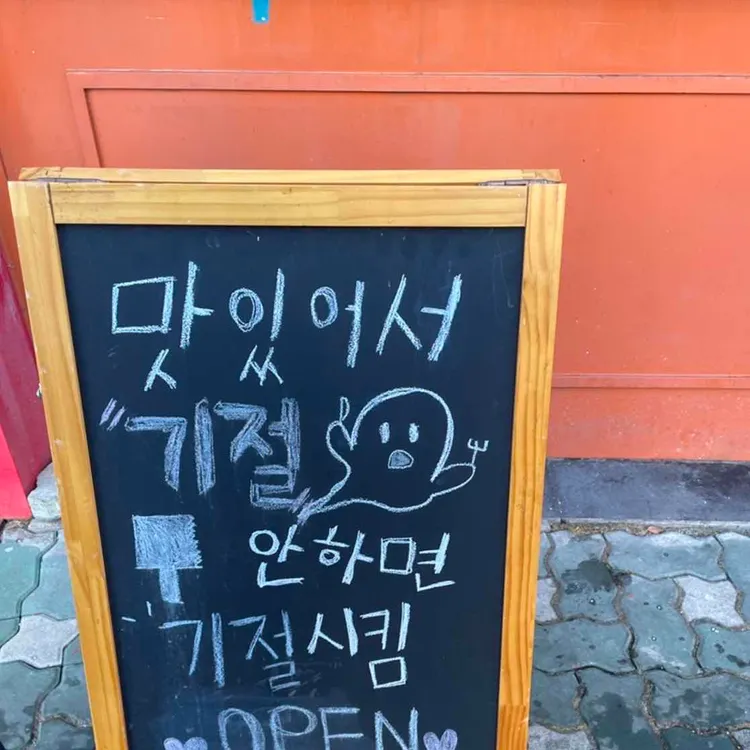 맛있어서
"기절"
안하면
기절시킴
OPEN